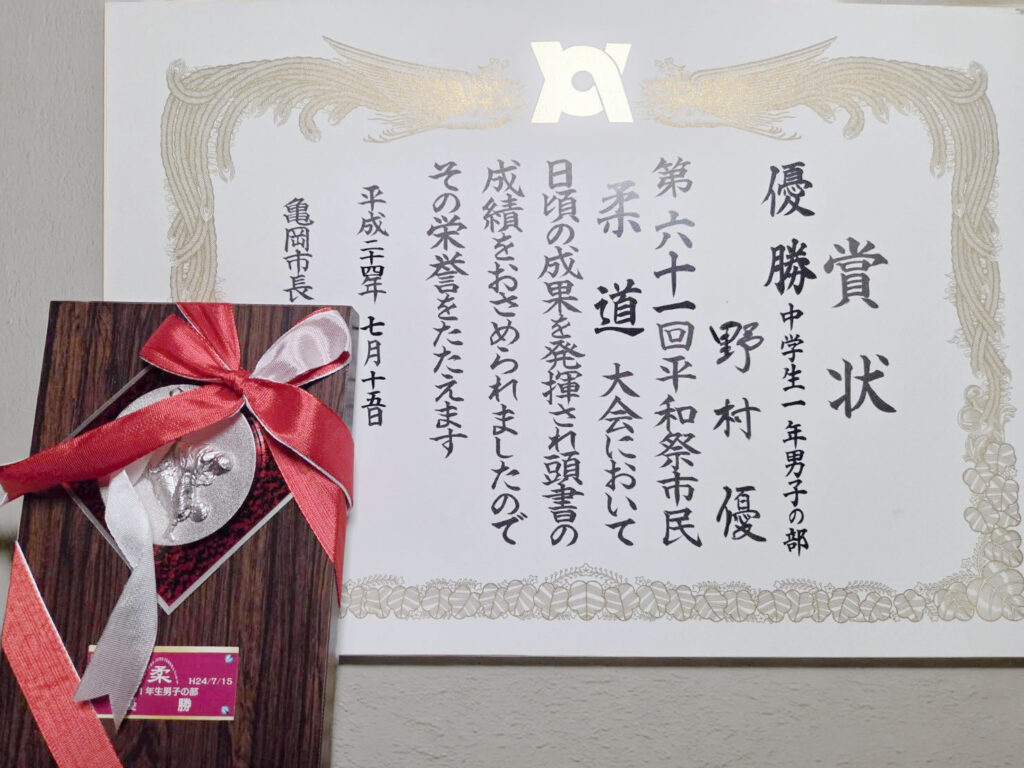 賞状
優勝 中学生一年男子の部
野村優
第六十一回平和祭市民
柔道大会において
日頃の成果を発揮され頭書の
成績をおさめられましたので
その栄誉をたたえます
平成二十四年 七月十五日
亀岡市長
柔
H24/7/15
年生男子の部
勝